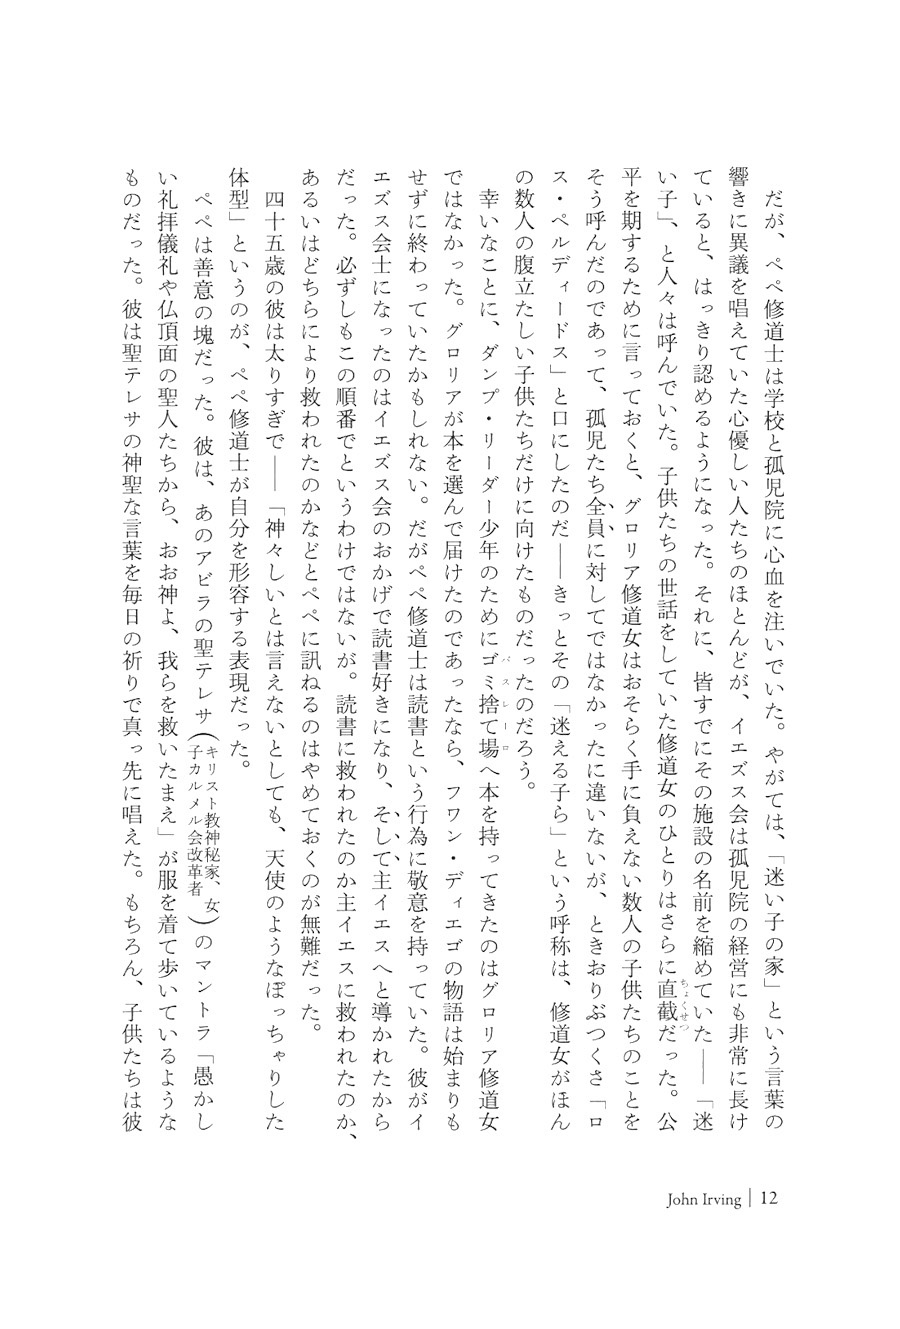 だが、ペペ修道士は学校と孤児院に心血を注いでいた。やがては、「迷い子の家」という言葉の
響きに異議を唱えていた心優しい人たちのほとんどが、イエズス会は孤児院の経営にも非常に長け
ていると、はっきり認めるようになった。それに、皆すでにその施設の名前を縮めていた――「迷
い子」、と人々は呼んでいた。子供たちの世話をしていた修道女のひとりはさらに直截だった。公
ちょくせつ
平を期するために言っておくと、グロリア修道女はおそらく手に負えない数人の子供たちのことを
そう呼んだのであって、孤児たち全員に対してではなかったに違いないが、ときおりぶつくさ「ロ
ス・ペルディードス」と口にしたのだ――きっとその「迷える子ら」という呼称は、修道女がほん
の数人の腹立たしい子供たちだけに向けたものだったのだろう。
幸いなことに、ダンプ・リーダー少年のためにゴミ捨て場へ本を持ってきたのはグロリア修道女
バスレーロ
ではなかった。グロリアが本を選んで届けたのであったなら、フワン・ディエゴの物語は始まりも
せずに終わっていたかもしれない。だがペペ修道士は読書という行為に敬意を持っていた。彼がイ
エズス会士になったのはイエズス会のおかげで読書好きになり、そして主イエスへと導かれたから
だった。必ずしもこの順番でというわけではないが。読書に救われたのか主イエスに救われたのか、
あるいはどちらにより救われたのかなどとペペに訊ねるのはやめておくのが無難だった。
四十五歳の彼は太りすぎで――「神々しいとは言えないとしても、天使のようなぽっちゃりした
体型」というのが、ペペ修道士が自分を形容する表現だった。
ペペは善意の塊だった。彼は、あのアビラの聖テレサ(キリスト教神秘家、女子カルメル会改革者)のマントラ「愚かし
い礼拝儀礼や仏頂面の聖人たちから、おお神よ、我らを救いたまえ」が服を着て歩いているような
ものだった。彼は聖テレサの神聖な言葉を毎日の祈りで真っ先に唱えた。もちろん、子供たちは彼
John Irving | 12